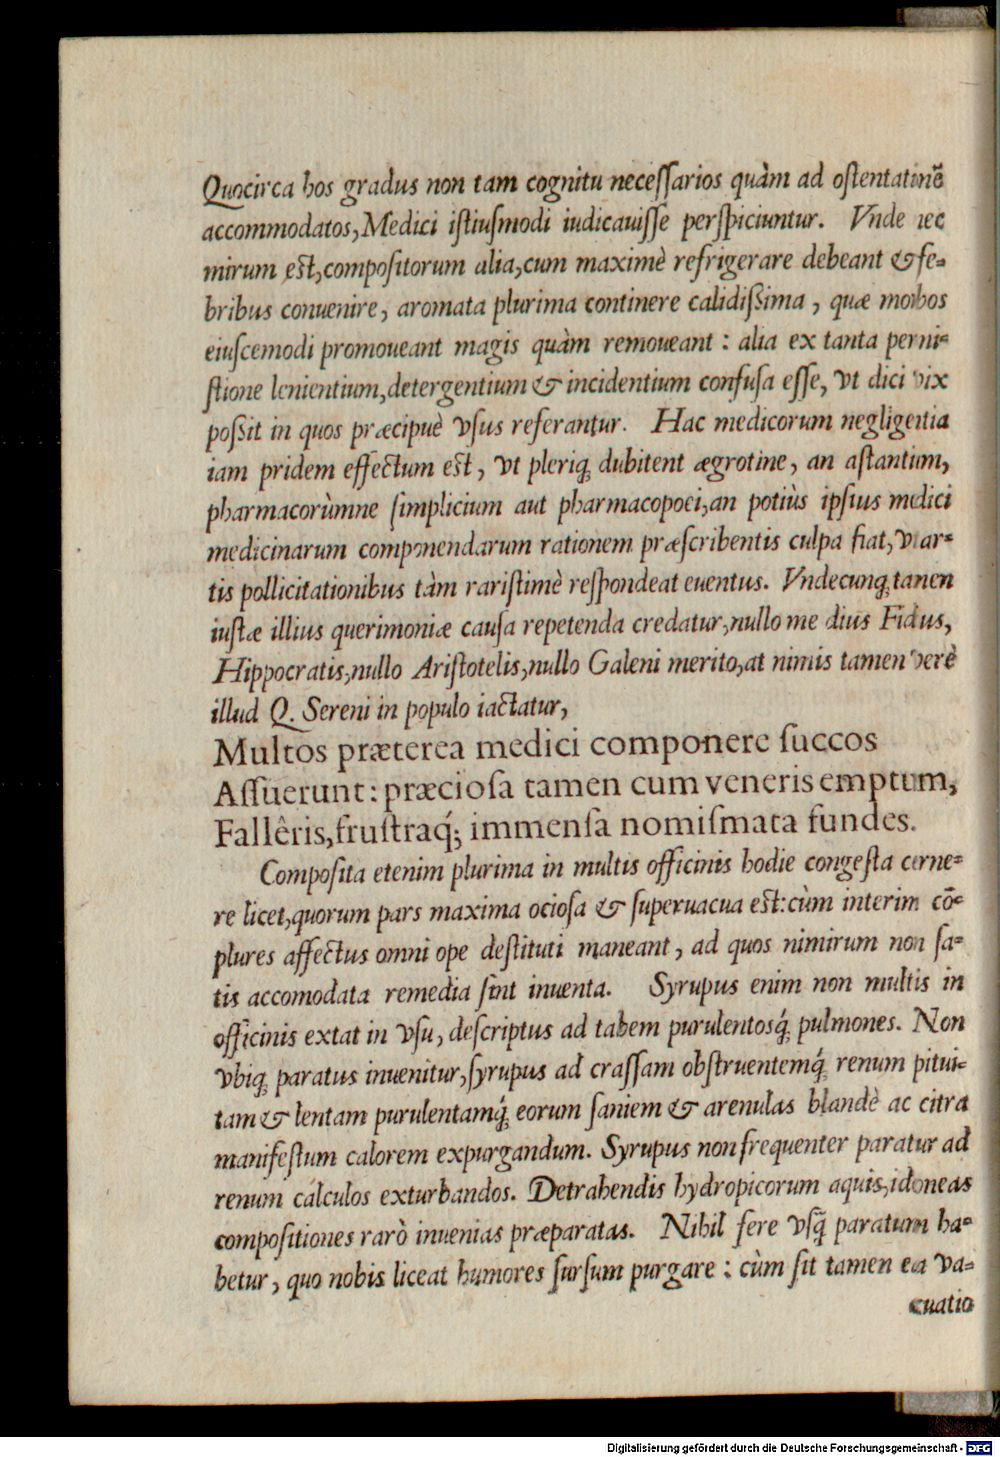 Quocirca hos gradus non tam cognitu neceſſarios quàm ad oſtentatinē
accommodatos, Medici iſtiuſmodi iudicauiſſe perſpiciuntur. Vnde nec
mirum eſt, compoſitorum alia, cum maximè refrigerare debeant & fe-
bribus conuenire, aromata plurima continere calidiſsima, quæ morbos
eiuſcemodi promoueant magis quàm remoueant: alia ex tanta permi-
ſtione lenientium, detergentium & incidentium confuſa eſſe, vt dici vix
poſsit in quos præcipuè vſus referantur. Hac medicorum negligentia
iam pridem effectum eſt, vt pleriq; dubitent ægrotine, an aſtantium,
pharmacorùmne ſimplicium aut pharmacopoei, an potiùs ipſius medici
medicinarum componendarum rationem præſcribentis culpa fiat, vt ar-
tis pollicitationibus tàm rariſtimè reſpondeat euentus. Vndecunq; tamen
iuſtæ illius querimoniæ cauſa repetenda credatur, nullo me dius Fidius,
Hippocratis, nullo Ariſtotelis, nullo Galeni merito, at nimis tamen verè
illud Q. Sereni in populo iactatur,
Multos præterea medici componere ſuccos
Aſſuerunt: præcioſa tamen cum veneris emptum,
Fallêris, fruſtraq́; immenſa nomiſmata fundes.
Compoſita etenim plurima in multis officinis hodie congeſta cerne-
re licet, quorum pars maxima ocioſa & ſuperuacua eſt: cùm interim cō-
plures affectus omni ope deſtituti maneant, ad quos nimirum non ſa-
tis accomodata remedia ſint inuenta. Syrupus enim non multis in
officinis extat in vſu, deſcriptus ad tabem purulentosq́; pulmones. Non
vbiq; paratus inuenitur, ſyrupus ad craſſam obſtruentemq́; renum pitui-
tam & lentam purulentamq́; eorum ſaniem & arenulas blandè ac citra
manifeſtum calorem expurgandum. Syrupus non frequenter paratur ad
renum cálculos exturbandos. Detrahendis hydropicorum aquis, idoneas
compoſitiones rarò inuenias præparatas. Nihil fere vſq̃ paratum ha-
betur, quo nobis liceat humores ſurſum purgare: cùm ſit tamen ea va-
cuatio
Digitalisierung gefördert durch die Deutsche Forschungsgemeinschaft - DFG